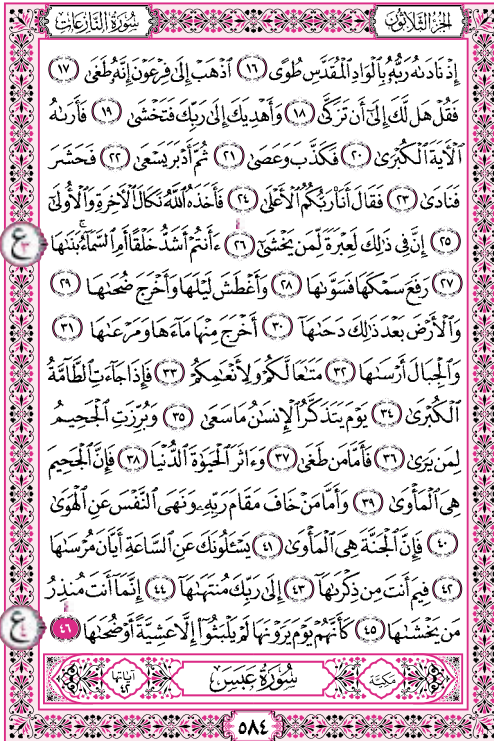 سُورَةُ النَّازِعَاتِ الجُزْءُ الثَّلَاثُونَ
إِذْ نَادَىٰهُ رَبُّهُۥ بِٱلْوَادِ ٱلْمُقَدَّسِ طُوًى ١٦ ٱذْهَبْ إِلَىٰ فِرْعَوْنَ إِنَّهُۥ طَغَىٰ ١٧
فَقُلْ هَل لَّكَ إِلَىٰٓ أَن تَزَكَّىٰ ١٨ وَأَهْدِيَكَ إِلَىٰ رَبِّكَ فَتَخْشَىٰ ١٩ فَأَرَىٰهُ
ٱلْـَٔايَةَ ٱلْكُبْرَىٰ ٢٠ فَكَذَّبَ وَعَصَىٰ ٢١ ثُمَّ أَدْبَرَ يَسْعَىٰ ٢٢ فَحَشَرَ
فَنَادَىٰ ٢٣ فَقَالَ أَنَا۠ رَبُّكُمُ ٱلْأَعْلَىٰ ٢٤ فَأَخَذَهُ ٱللَّهُ نَكَالَ ٱلْـَٔاخِرَةِ وَٱلْأُولَىٰٓ
٢٥ إِنَّ فِى ذَٰلِكَ لَعِبْرَةً لِّمَن يَخْشَىٰٓ ٢٦ ءَأَنتُمْ أَشَدُّ خَلْقًا أَمِ ٱلسَّمَآءُ ۚ بَنَىٰهَا ع ٣
٢٧ رَفَعَ سَمْكَهَا فَسَوَّىٰهَا ٢٨ وَأَغْطَشَ لَيْلَهَا وَأَخْرَجَ ضُحَىٰهَا ٢٩
وَٱلْأَرْضَ بَعْدَ ذَٰلِكَ دَحَىٰهَآ ٣٠ أَخْرَجَ مِنْهَا مَآءَهَا وَمَرْعَىٰهَا ٣١
وَٱلْجِبَالَ أَرْسَىٰهَا ٣٢ مَتَـٰعًا لَّكُمْ وَلِأَنْعَـٰمِكُمْ ٣٣ فَإِذَا جَآءَتِ ٱلطَّآمَّةُ
ٱلْكُبْرَىٰ ٣٤ يَوْمَ يَتَذَكَّرُ ٱلْإِنسَـٰنُ مَا سَعَىٰ ٣٥ وَبُرِّزَتِ ٱلْجَحِيمُ
لِمَن يَرَىٰ ٣٦ فَأَمَّا مَن طَغَىٰ ٣٧ وَءَاثَرَ ٱلْحَيَوٰةَ ٱلدُّنْيَا ٣٨ فَإِنَّ ٱلْجَحِيمَ
هِىَ ٱلْمَأْوَىٰ ٣٩ وَأَمَّا مَنْ خَافَ مَقَامَ رَبِّهِۦ وَنَهَى ٱلنَّفْسَ عَنِ ٱلْهَوَىٰ
٤٠ فَإِنَّ ٱلْجَنَّةَ هِىَ ٱلْمَأْوَىٰ ٤١ يَسْـَٔلُونَكَ عَنِ ٱلسَّاعَةِ أَيَّانَ مُرْسَىٰهَا
٤٢ فِيمَ أَنتَ مِن ذِكْرَىٰهَآ ٤٣ إِلَىٰ رَبِّكَ مُنتَهَىٰهَآ ٤٤ إِنَّمَآ أَنتَ مُنذِرُ
مَن يَخْشَىٰهَا ٤٥ كَأَنَّهُمْ يَوْمَ يَرَوْنَهَا لَمْ يَلْبَثُوٓا۟ إِلَّا عَشِيَّةً أَوْ ضُحَىٰهَا ٤٦ ع ٤
مَكِّيَّة سُورَةُ عَبَسَ آيَاتُهَا ٤٢
٥٨٤